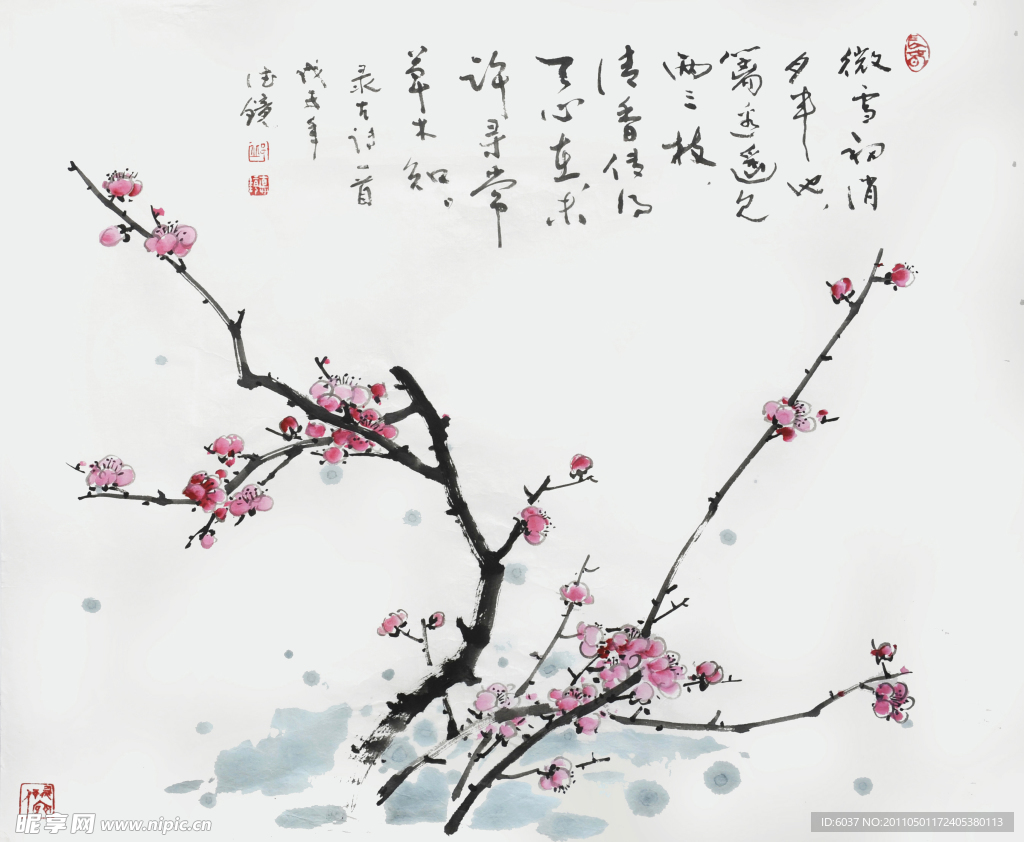 微雪初消
月半池,
篱边遥见
两三枝,
清香传得
天心在未
许寻常
草木知。
录古诗一首
昵享网 www.nipic.cn
ID:6037 NO:20110501172405380113